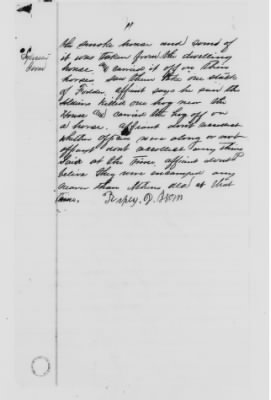 the smoke house and some of
it was taken from the dwelling
house, & carried it off on their
horses saw them take one stack
of Fodder, affiant says he saw the
soldiers killed one hog near the
House & carried the hog off on
a horse. affiant dont recollect
whether officers were along or not
affiant dont recollect any thing
said at the time, affiant dont
belive they were encamped any
nearer than Athens Ala at that
time.